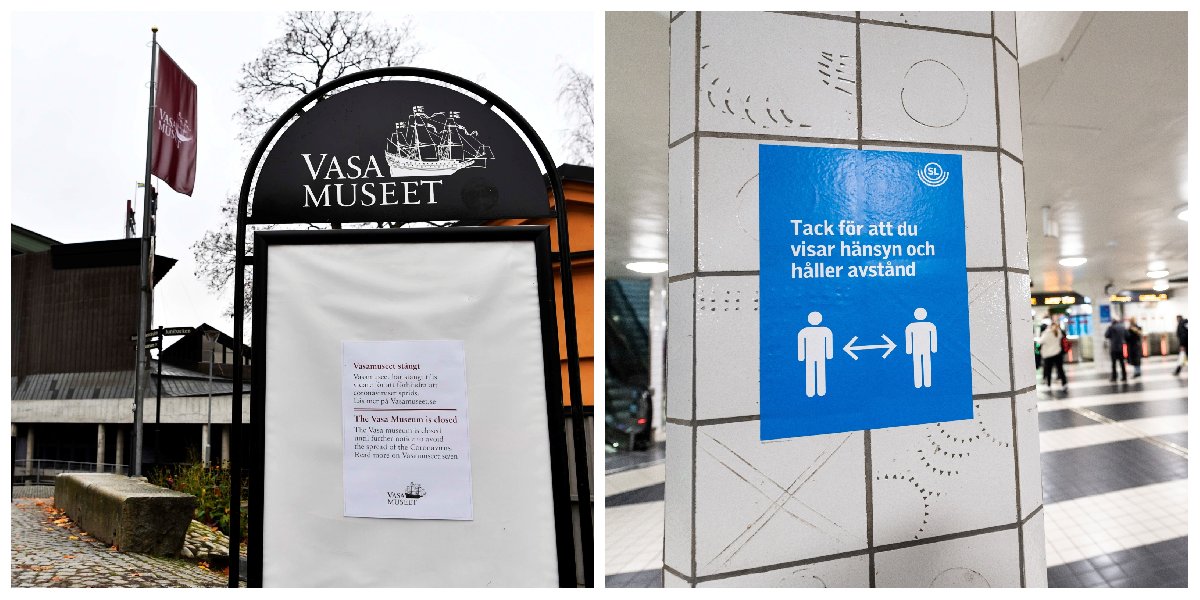 VASA
MUSEET
VASA
MUSEET
Vasamuseet stängt
Vasamuseet har stängt tills
vidare för att förhindra att
coronaviruset sprids.
Läs mer på Vasamuseet.se
The Vasa Museum is closed
The Vasa museum is closed
until further notice to avoid
the spread of the Coronavirus.
Read more on Vasamuseet.se/en
VASA
MUSEET
Junibacken
SL
Tack för att du
visar hänsyn och
håller avstånd